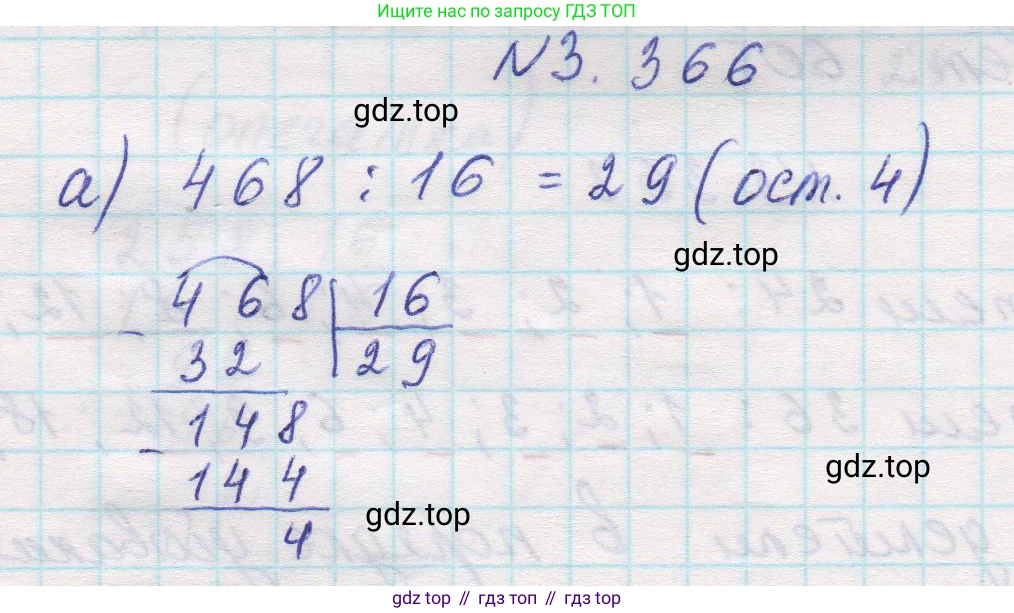 Ищите нас по запросу ГДЗ ТОП
N 3. 366
gdz.top
а) 468 : 16 = 29 (ост. 4)
gdz.top
468 | 16
- 32 | 29
148
- 144
gdz.top
4
gdz.top
gdz.top // гдз топ // gdz.top